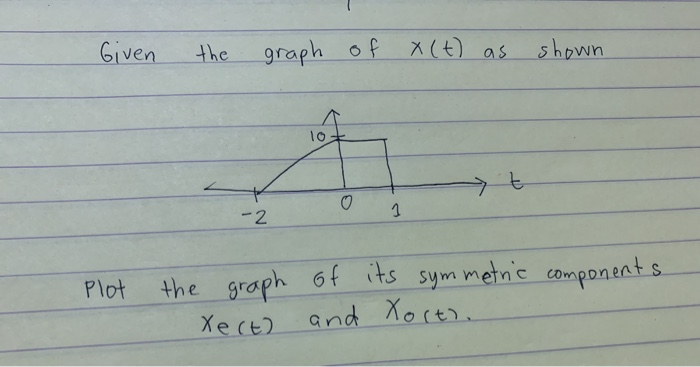 Given the graph of x(t) as shown
10
t
-2 0 1
Plot the graph of its symmetric components
Xe(t) and Xo(t).